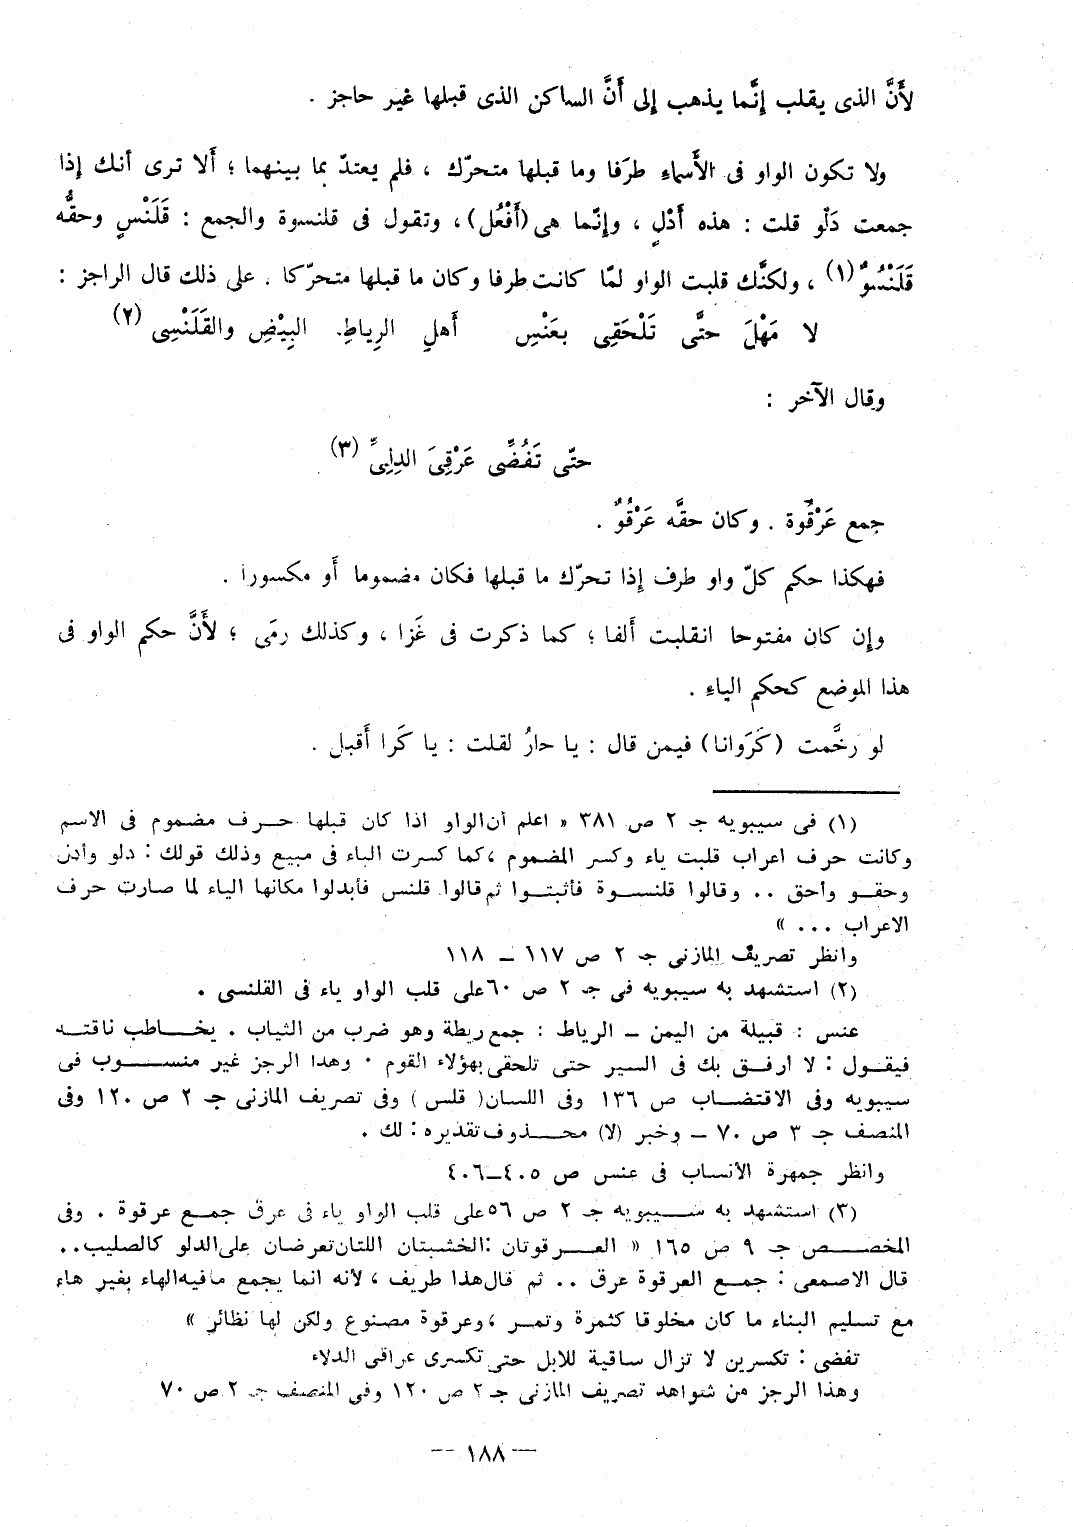 لأَنَّ الذى يقلب إنَّما يذهب إلى أَنَّ الساكن الذى قبلها غير حاجز .
ولا تكون الواو فى الأَسماء طرَفا وما قبلها متحرّك ، فلم يعتدّ بما بينهما ؛ أَلا ترى أنك إذا
جمعت دَلْو قلت : هذه أَدْلٍ ، وإنّما هى (أَفْعُل) ، وتقول فى قلنسوة والجمع : قَلَنْسٍ وحقُّه
قَلَنْسُوٌ (١) ، ولكنَّك قلبت الواو لمّا كانت طرفا وكان ما قبلها متحرّكا . على ذلك قال الراجز :
لا مَهْلَ حتَّى تَلْحَقِى بعَنْسِ أَهلِ الرِياطِ البِيْضِ والقَلَنْسِى (٢)
وقال الآخر :
حتّى تَفُضِّى عَرْقِىَ الدِلِىِّ (٣)
جمع عَرْقُوة . وكان حقَّه عَرْقُوٌ .
فهكذا حكم كلّ واو طرف إذا تحرّك ما قبلها فكان مضموما أَو مكسورا .
وإن كان مفتوحا انقلبت أَلفا ؛ كما ذكرت فى غَزا ، وكذلك رمَى ؛ لأَنَّ حكم الواو فى
هذا الموضع كحكم الياءِ .
لو رخَّمت (كَرَوانا) فيمن قال : يا حارُ لقلت : يا كَرا أَقبل .
(١) فى سيبويه جـ ٢ ص ٣٨١ « اعلم أن الواو اذا كان قبلها حرف مضموم فى الاسم
وكانت حرف اعراب قلبت ياء وكسر المضموم ، كما كسرت الباء فى مبيع وذلك قولك : دلو وأدل
وحقو وأحق .. وقالوا قلنسوة فأثبتوا ثم قالوا قلنس فأبدلوا مكانها الياء لما صارت حرف
الاعراب ... »
وانظر تصريف المازنى جـ ٢ ص ١١٧ ـ ١١٨
(٢) استشهد به سيبويه فى جـ ٢ ص ٦٠ على قلب الواو ياء فى القلنسى .
عنس : قبيلة من اليمن ـ الرياط : جمع ريطة وهو ضرب من الثياب . يخاطب ناقته
فيقول : لا أرفق بك فى السير حتى تلحقى بهؤلاء القوم . وهذا الرجز غير منسوب فى
سيبويه وفى الاقتضاب ص ١٣٦ وفى اللسان ( قلس ) وفى تصريف المازنى جـ ٢ ص ١٢٠ وفى
المنصف جـ ٣ ص ٧٠ ـ وخبر (لا) محذوف تقديره : لك .
وانظر جمهرة الأنساب فى عنس ص ٤٠٥ـ٤٠٦
(٣) استشهد به سيبويه جـ ٢ ص ٥٦ على قلب الواو ياء فى عرق جمع عرقوة . وفى
المخصص جـ ٩ ص ١٦٥ « العرقوتان : الخشبتان اللتان تعرضان على الدلو كالصليب ..
قال الاصمعى : جمع العرقوة عرق .. ثم قال هذا طريف ، لأنه انما يجمع ما فيه الهاء بغير هاء
مع تسليم البناء ما كان مخلوقا كثمرة وتمر ، وعرقوة مصنوع ولكن لها نظائر »
تفضى : تكسرين لا تزال ساقية للابل حتى تكسرى عراقى الدلاء
وهذا الرجز من شواهد تصريف المازنى جـ ٢ ص ١٢٠ وفى المنصف جـ ٢ ص ٧٠
— ١٨٨ —